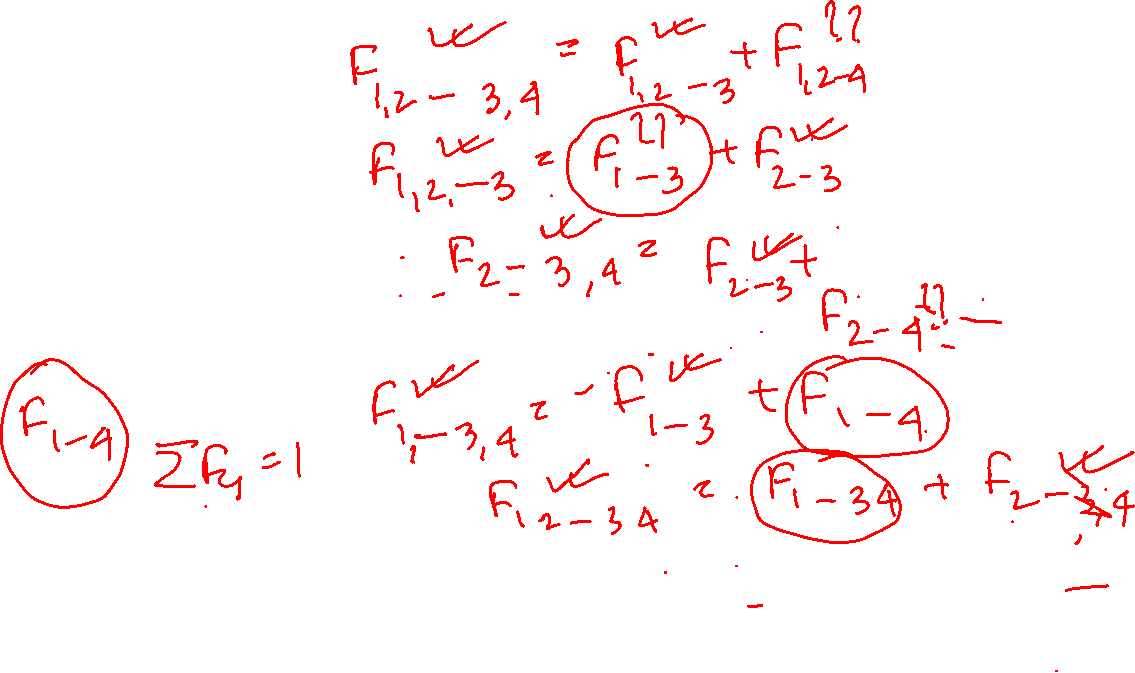 F1,2-3,4 = F1,2-3 + F1,2-4 ??
F1,2,-3 = F1-3 ?? + F2-3
∴ F2-3,4 = F2-3 +
F2-4 ??
F1-3,4 = F1-3 + F1-4
F1-4 ΣF1 = 1
F12-34 = F1-34 + F2-3,4